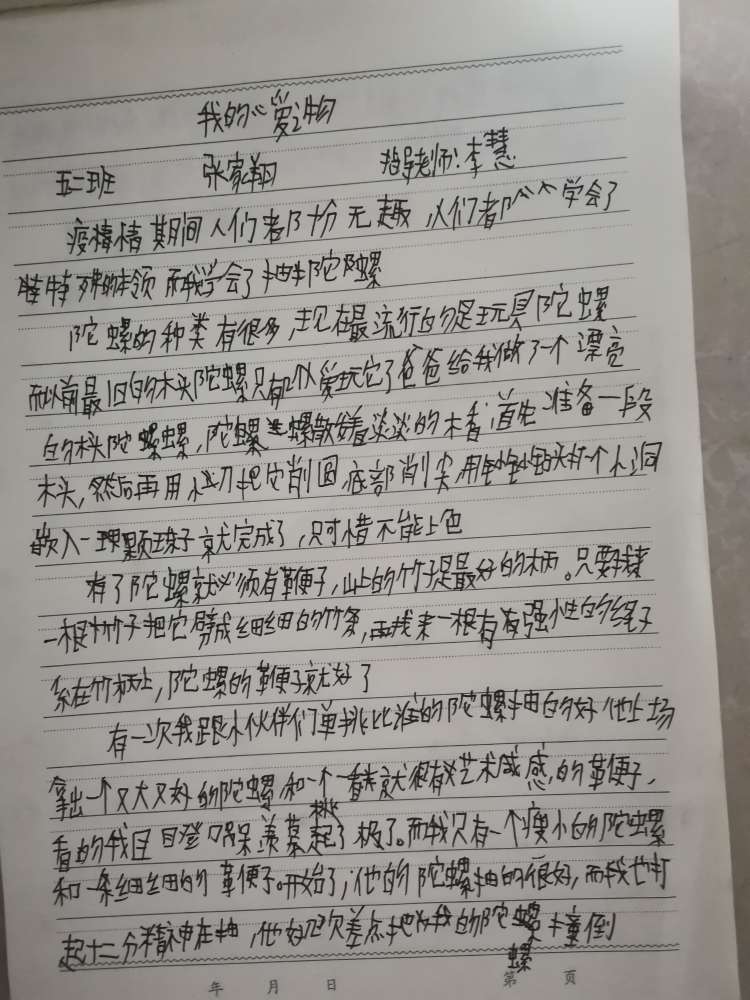 我的心爱之物
五二班 张家翔 指导老师:李慧
疫情期间人们都十分无趣,人们都个个学会了
特殊的本领而我学会了抽陀螺
陀螺的种类有很多,现在最流行的是玩具陀螺
而以前最旧的木头陀螺只有爱玩它了爸爸给我做了一个漂亮
的木头陀螺,陀螺散着淡淡的木香,首先准备一段
木头,然后再用小刀把它削圆底部削尖,用钻头打一个小洞
嵌入一颗珠子就完成了,只可惜不能上色
有了陀螺就必须有鞭子,山上的竹子是最好的柄。只要
一根竹子把它劈成细细的竹条,再找来一根有强性的绳子
系在竹柄上,陀螺的鞭子就好了
有一次我跟小伙伴们单挑比谁的陀螺抽的好他上场
拿出一个又大又好的陀螺,和一个一看就很有艺术感的鞭子,
看的我目瞪口呆羡慕起了极了。而我只有一个瘦小的陀螺
和一条细细的鞭子。开始了,他的陀螺抽的很好,而我也打
起十二分精神在抽,他好几次差点把我的陀螺撞倒
螺
年 月 日 第 页